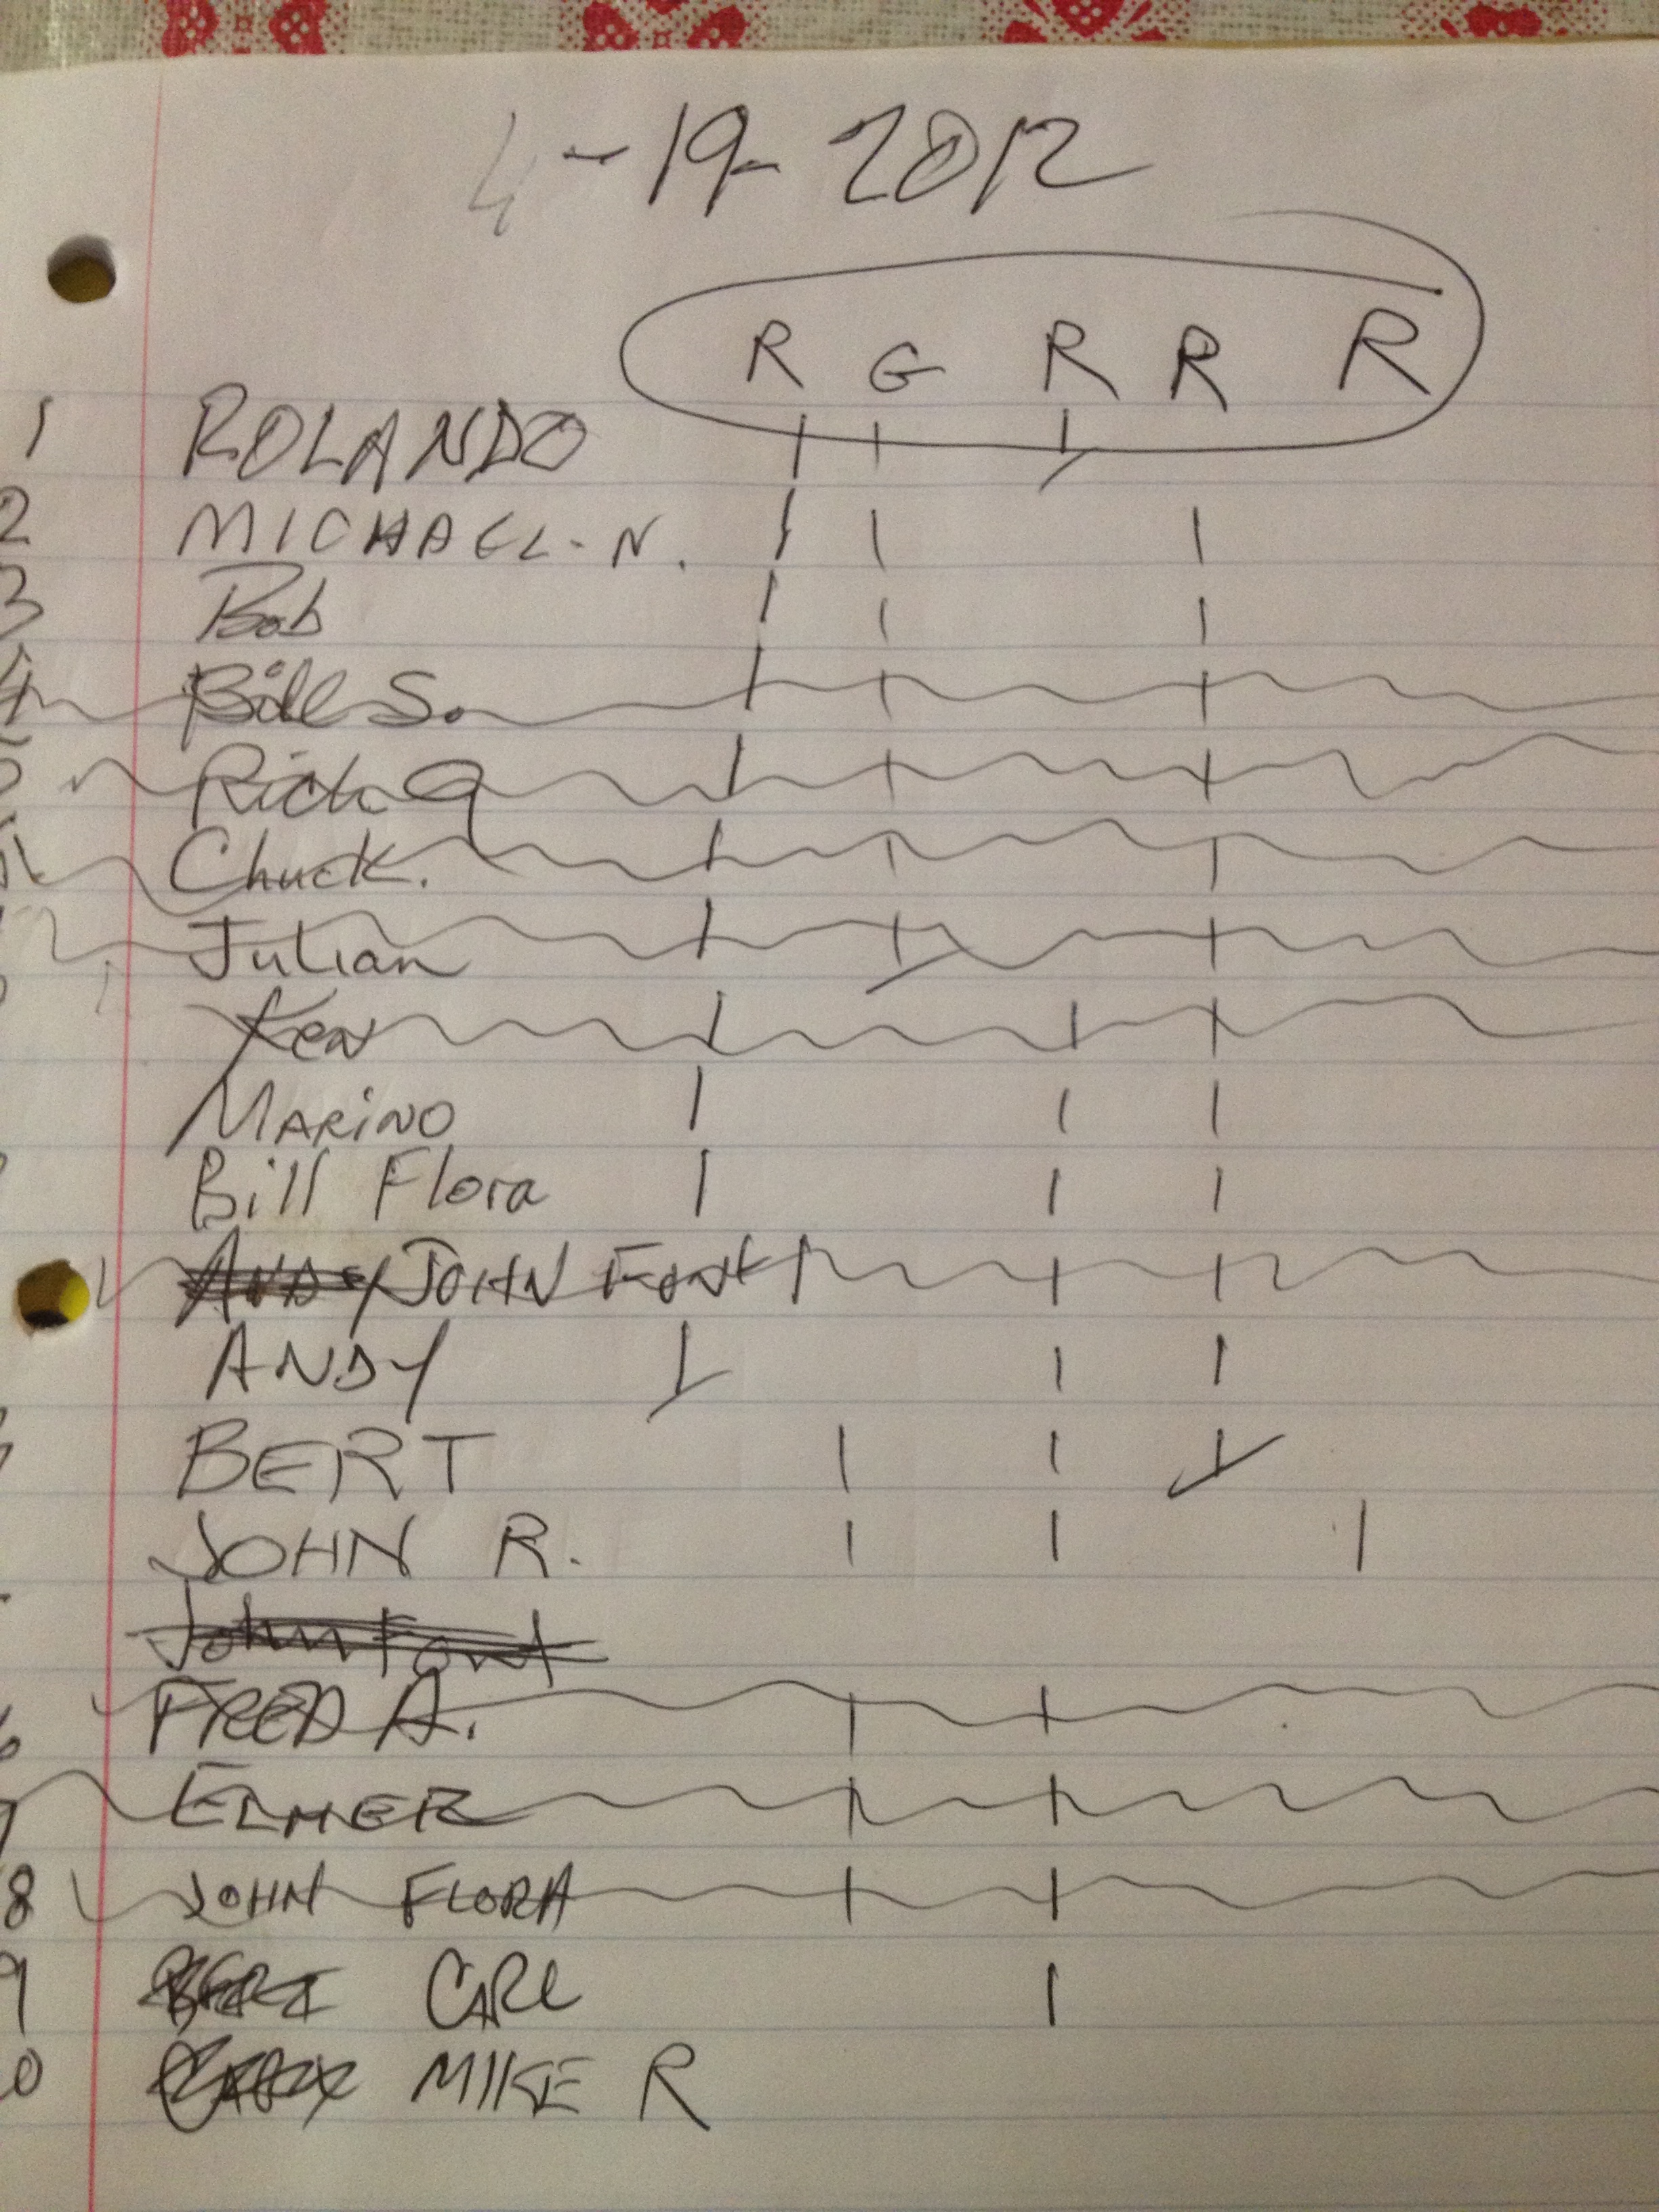 4-19-2012
R G R R R
1 ROLANDO | | |
2 MICHAEL-N. | | |
3 Bob | | |
4 Bill S. | | |
Rich Q | | |
Chuck. | | |
Julian | | |
Ken | | |
MARINO | | |
Bill Flora | | |
ANDY JOHN Font | | |
ANDY | | |
BERT | | |
JOHN R. | | |
John Font
6 FRED A. | |
7 ELMER | |
8 JOHN FLORA | |
9 BERT CARL |
0 MIKE R